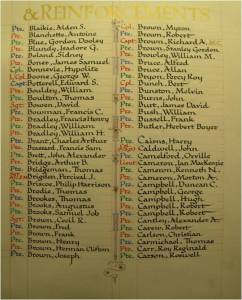 & REINFORCEMENTS
Pte. Blaikie, Alden S.
Pte. Blanchette, Antoine
Pte. Blue, Gordon Dooley
Pte. Blundy, Isadore G.
Pte. Bland, Sidney
Pte. Bones, James Samuel
Cpl. Bonsevele, Hypolite
Boone, George W.
Capt. Botterell, Edward S.
Pte. Bouldin, William
Pte. Boulton, Thomas
Sgt. Bowen, David
Pte. Bowman, Francis C.
Pte. Bradley, Francis Henry
Pte. Bradley, William
Pte. Bradley, William H.
Pte. Brant, Charles Arthur
Pte. Bryant, Francis Sam
Pte. Brett, John Alexander
Pte. Bridge, Arthur B.
Pte. Bridgeman, Thomas
Brigden, Percival J.
Pte. Briscoe, Philip Harrison
Pte. Brodie, Thomas
Pte. Brookes, Thomas
Pte. Brooks, Augustus
Pte. Brooks, Samuel Job
Sgt. Brown, Cecil R.
Pte. Brown, Fred
Pte. Brown, Frank
Pte. Brown, Henry
Pte. Brown, Herman Clifton
Pte. Brown, Joseph
Cpl. Brown, Myron
Pte. Brown, Robert
Cpl. Brown, Richard A.
Pte. Brown, Stanley Gordon
Pte. Browley, William M.
Pte. Bruce, Alfred
Pte. Bruce, Alban
Pte. Bryan, Percy Roy
Cpl. Bunn, Bert
Pte. Bunston, Melvin
Pte. Burns, John
Pte. Burt, James David
Pte. Bush, William
Pte. Bussell, Frank
Pte. Butler, Herbert Boyer
Pte. Cairns, Harry
Caldwell, John
Pte. Camelford, Orville
Cameron, Ian MacKenzie
Pte. Cameron, Kenneth N.
Pte. Cameron, Morton A.
Pte. Campbell, Duncan C.
Pte. Campbell, George
Pte. Campbell, Hugh
Pte. Campbell, Robert
Pte. Campbell, Robert
Pte. Cantley, Alexander A.
Pte. Carew, Robert
Pte. Carlsen, Christian
Pte. Carmichael, Thomas
Pte. Carr, Roy Reginald
Pte. Carson, Roswell